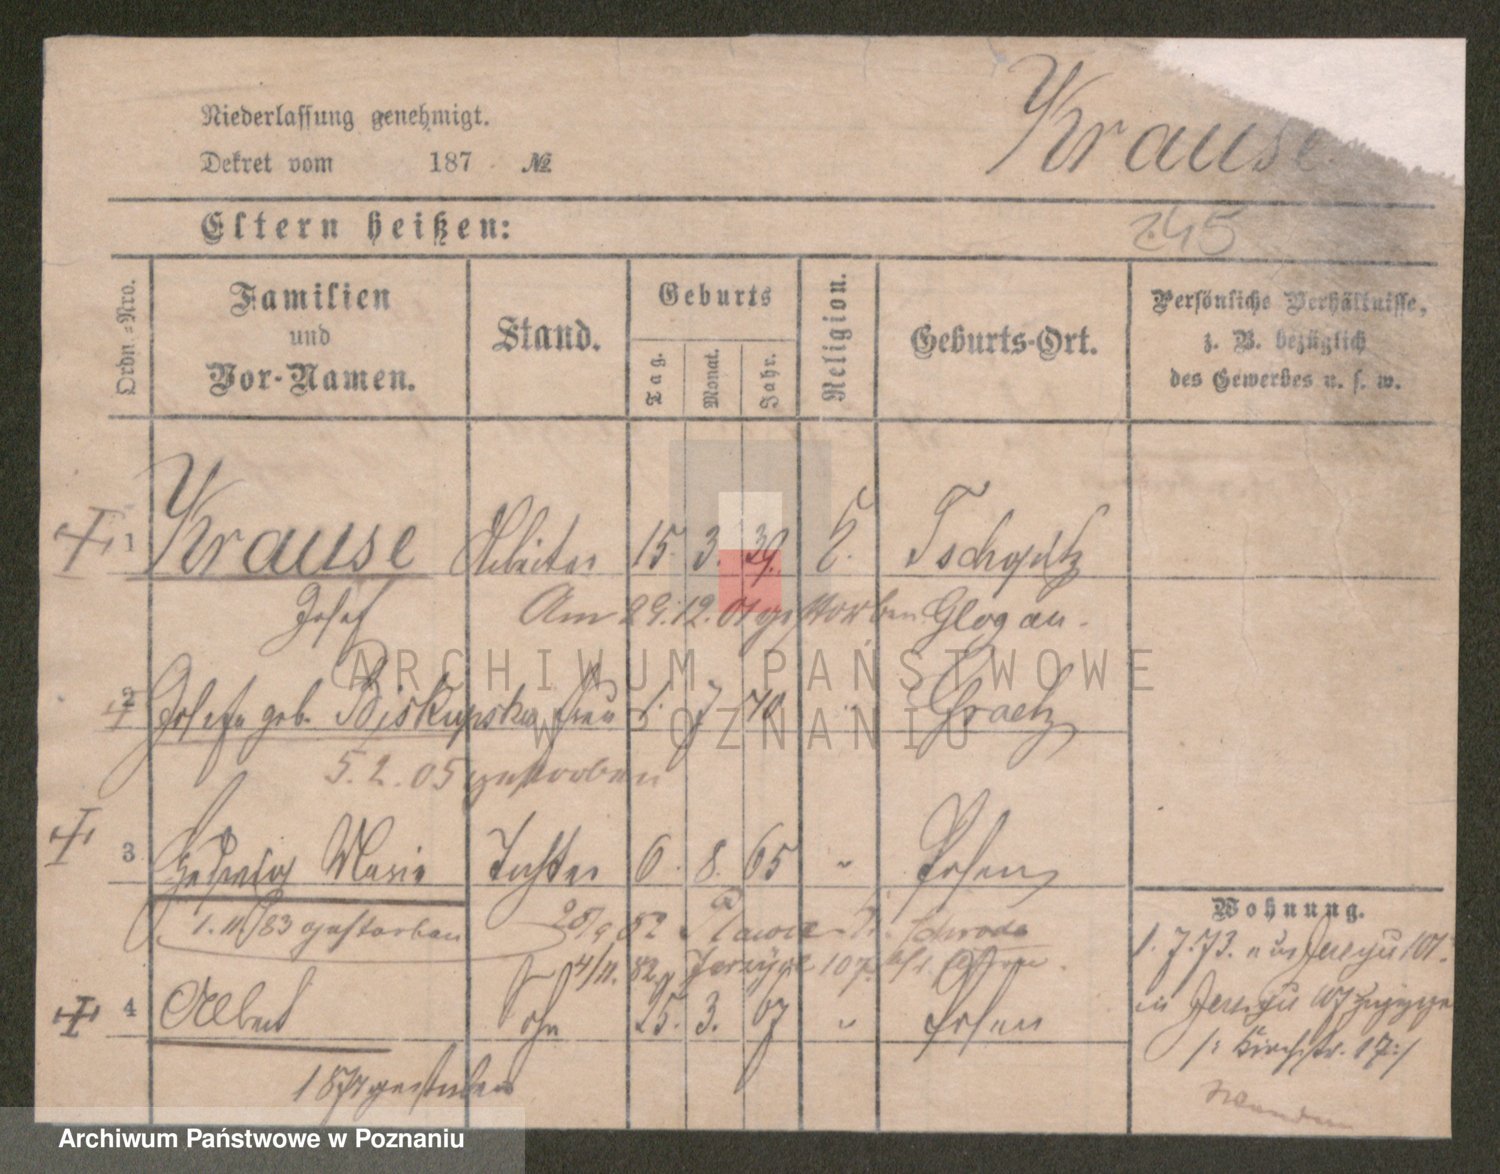 Niederlassung genehmigt.
Dekret vom 187 №
Krause
Eltern heißen:
245
Ordn.=Nro.
Familien
und
Vor-Namen.
Stand.
Geburts
Tag.
Monat.
Jahr.
Religion.
Geburts-Ort.
Persönliche Verhältnisse,
z. B. bezüglich
des Gewerbes u. s. w.
1 Krause Arbeiter 15. 3. 39. k.
Josef Am 29.12.01 gestorben Glogau.
2 Josefa geb. Biskupska Frau 1. 7 40 " Graetz
5.2.05 gestorben
3 Hedwig Marie Tochter 6. 8. 65 " Posen
1.11./83 gestorben 25/9 82 Schroda
4/11. 82 Jerzyce 107
4 Albert Sohn 25. 3. 67 " Posen
1871 gestorben
Wohnung.
1.7.73. aus Jerzyce 107.
in Jerzyce 107
/: Kirchstr. 17 :/
ARCHIWUM PAŃSTWOWE
W POZNANIU
Archiwum Państwowe w Poznaniu